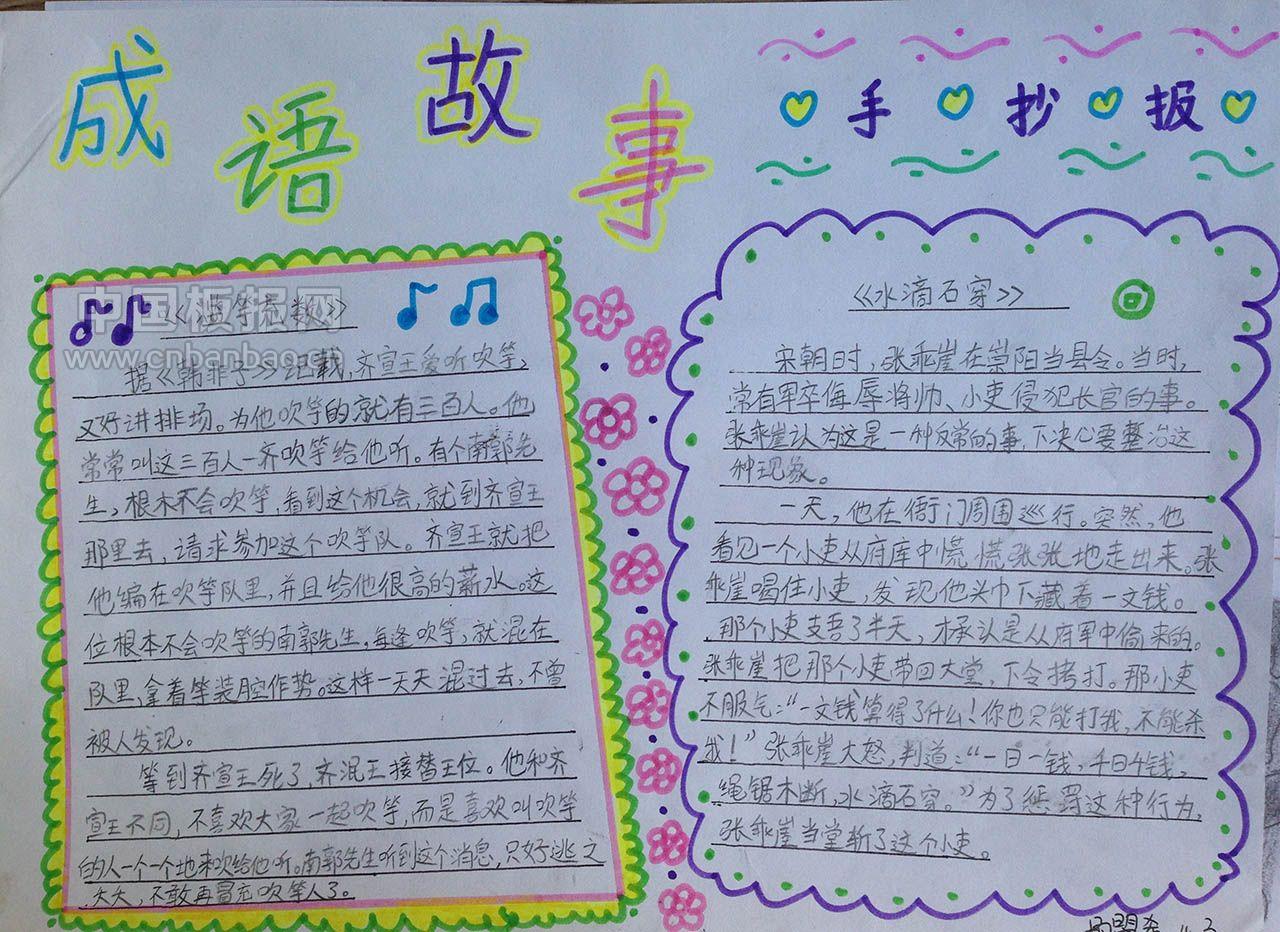 成语故事
手抄报
中国板报网
www.cnbanbao.cn
《滥竽充数》
据《韩非子》记载,齐宣王爱听吹竽,
又好讲排场。为他吹竽的就有三百人。他
常常叫这三百人一齐吹竽给他听。有个南郭先
生,根本不会吹竽,看到这个机会,就到齐宣王
那里去,请求参加这个吹竽队。齐宣王就把
他编在吹竽队里,并且给他很高的薪水。这
位根本不会吹竽的南郭先生,每逢吹竽,就混在
队里,拿着竽装腔作势。这样一天天混过去,不曾
被人发现。
等到齐宣王死了,齐混王接替王位。他和齐
宣王不同,不喜欢大家一起吹竽,而是喜欢叫吹竽
的人一个一个地来吹给他听。南郭先生听到这个消息,只好逃之
夭夭,不敢再冒充吹竽人了。
《水滴石穿》
宋朝日时,张乖崖在崇阳当县令。当时,
常有军卒侮辱将帅、小吏侵犯长官的事。
张乖崖认为这是一种反常的事,下决心要整治这
种现象。
一天,他在衙门周围巡行。突然,他
看见一个小吏从府库中慌慌张张地走出来。张
乖崖喝住小吏,发现他头巾下藏着一文钱。
那个小吏支吾了半天,才承认是从府库中偷来的。
张乖崖把那个小吏带回大堂,下令拷打。那小吏
不服气:“一文钱算得了什么!你也只能打我,不能杀
我!”张乖崖大怒,判道:“一日一钱,千日千钱,
绳锯木断,水滴石穿。”为了惩罚这种行为,
张乖崖当堂斩了这个小吏。